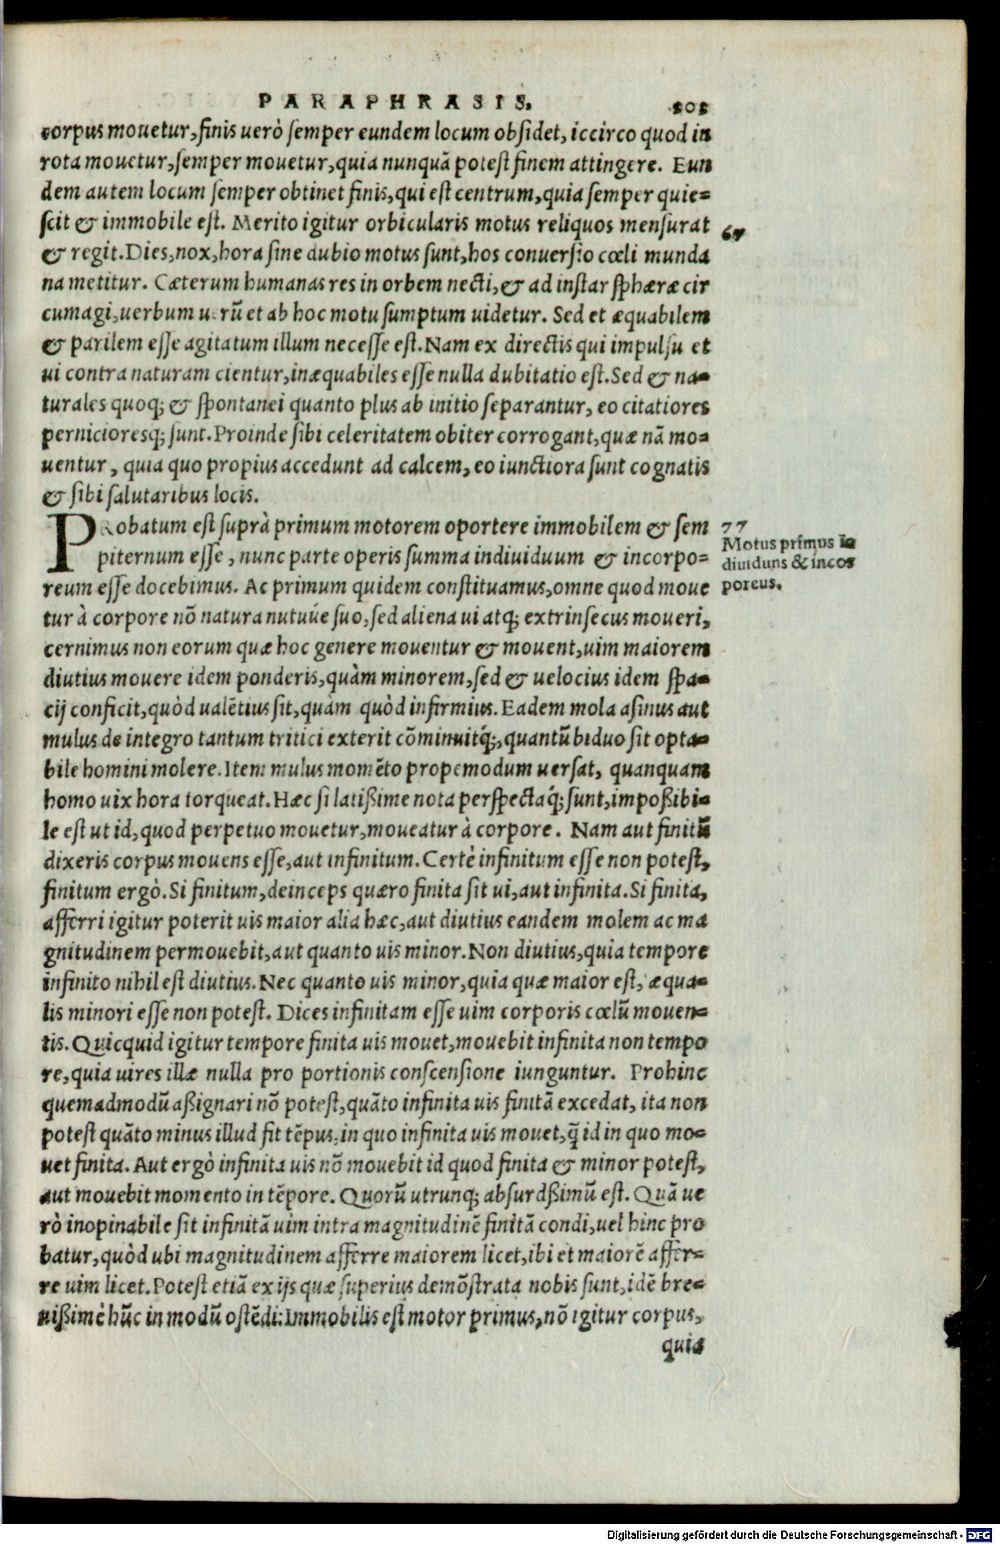 PARAPHRASIS.
corpus mouetur, finis uerò semper eundem locum obsidet, iccirco quod in
rota mouetur, semper mouetur, quia nunquã potest finem attingere. Eun
dem autem locum semper obtinet finis, qui est centrum, quia semper quie-
scit & immobile est. Merito igitur orbicularis motus reliquos mensurat
& regit. Dies, nox, hora sine dubio motus sunt, hos conuersio cœli munda
na metitur. Cæterum humanas res in orbem necti, & ad instar sphæræ cir
cumagi, uerbum uerũ et ab hoc motu sumptum uidetur. Sed et æquabilem
& parilem esse agitatum illum necesse est. Nam ex directis qui impulsu et
ui contra naturam cientur, inæquabiles esse nulla dubitatio est. Sed & na-
turales quoq; & spontanei quanto plus ab initio separantur, eo citatiores
pernicioresq; sunt. Proinde sibi celeritatem obiter corrogant, quæ nã mo-
uentur, quia quo propius accedunt ad calcem, eo iunctiora sunt cognatis
& sibi salutaribus locis.
PRobatum est suprà primum motorem oportere immobilem & sem
77
Motus primus in
diuiduns & incor
poreus.
piternum esse, nunc parte operis summa indiuiduum & incorpo-
reum esse docebimus. Ac primum quidem constituamus, omne quod moue
tur à corpore nõ natura nutuúe suo, sed aliena ui atq; extrinsecus moueri,
cernimus non eorum quæ hoc genere mouentur & mouent, uim maiorem
diutius mouere idem ponderis, quàm minorem, sed & uelocius idem spa-
cij conficit, quòd ualẽtius sit, quàm quòd infirmius. Eadem mola asinus aut
mulus de integro tantum tritici exterit cõminuitq́;, quantũ biduo sit opta-
bile homini molere. Item mulus momẽto propemodum uersat, quanquam
homo uix hora torqueat. Hæc si latißime nota perspectaq́; sunt, impoßibi-
le est ut id, quod perpetuo mouetur, moueatur à corpore. Nam aut finitũ
dixeris corpus mouens esse, aut infinitum. Certè infinitum esse non potest,
finitum ergò. Si finitum, deinceps quæro finita sit ui, aut infinita. Si finita,
afferri igitur poterit uis maior alia hæc, aut diutius eandem molem ac ma
gnitudinem permouebit, aut quanto uis minor. Non diutius, quia tempore
infinito nihil est diutius. Nec quanto uis minor, quia quæ maior est, æqua-
lis minori esse non potest. Dices infinitam esse uim corporis cœlũ mouen-
tis. Quicquid igitur tempore finita uis mouet, mouebit infinita non tempo
re, quia uires illæ nulla pro portionis conscensione iunguntur. Prohinc
quemadmodũ aßignari nõ potest, quãto infinita uis finitã excedat, ita non
potest quãto minus illud fit tẽpus, in quo infinita uis mouet, q̃ id in quo mo-
uet finita. Aut ergò infinita uis nõ mouebit id quod finita & minor potest,
aut mouebit momento in tẽpore. Quorũ utrunq; absurdßimũ est. Quã ue
rò inopinabile sit infinitã uim intra magnitudinẽ finitã condi, uel hinc pro
batur, quòd ubi magnitudinem afferre maiorem licet, ibi et maiorẽ affer-
re uim licet. Potest etiã ex ijs quæ superius demõstrata nobis sunt, idẽ bre-
uißimè hũc in modũ ostẽdi: Immobilis est motor primus, nõ igitur corpus,
quia
Digitalisierung gefördert durch die Deutsche Forschungsgemeinschaft - DFG